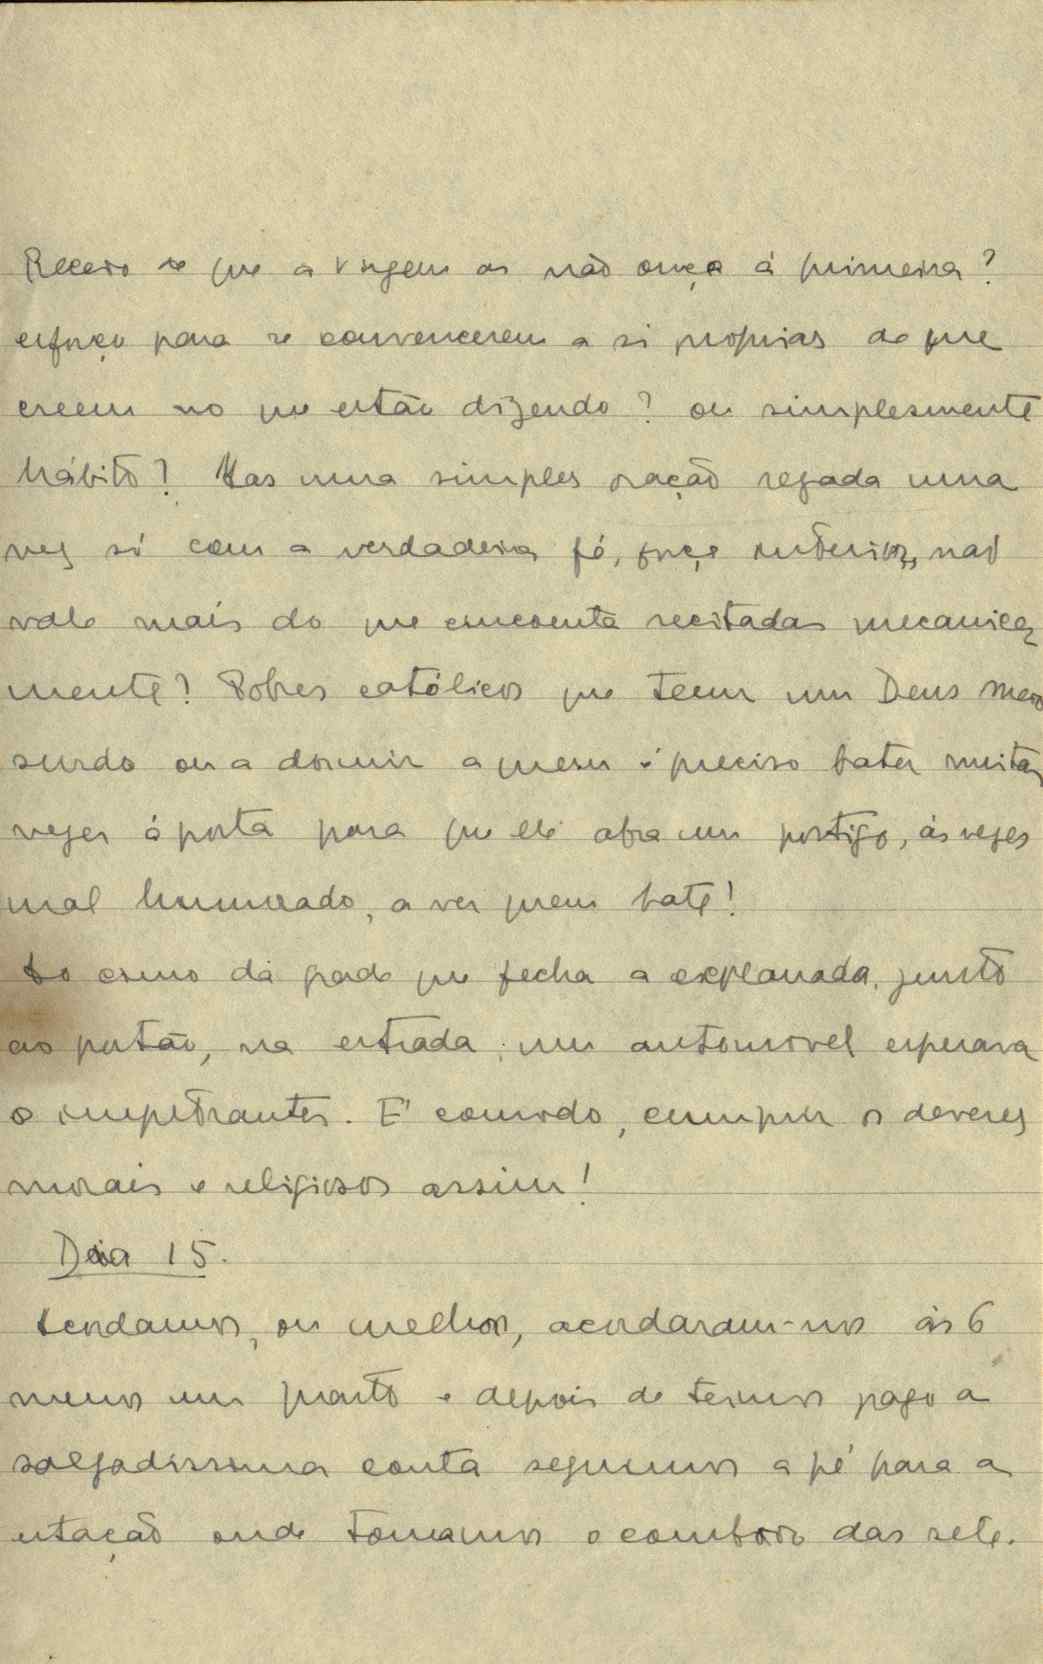 Receio de que a Virgem os não ouça á primeira?
esforço para se convencerem a si proprias de que
creem no que estão dizendo? ou simplesmente
hábito? Mas uma simples oração resada uma
vez só com a verdadeira fé, força interior, não
vale mais do que cincoenta recitadas mecanica
mente? Pobres católicos que teem um Deus meio
surdo ou a dormir a quem é preciso bater muitas
vezes á porta para que ele abra um postigo, ás vezes
mal humorado, a ver quem bate!
Ao cimo da grade que fecha a explanada, junto
ao portão, na estrada, um automovel esperava
o impetrantes. E' comodo, cumprir os deveres
morais e religiosos assim!
Dia 15.
Acordamos, ou melhor, acordaram-nos ás 6
menos um quarto e depois de termos pago a
salgadissima conta seguimos a pé para a
estação onde tomamos o comboio das sete.